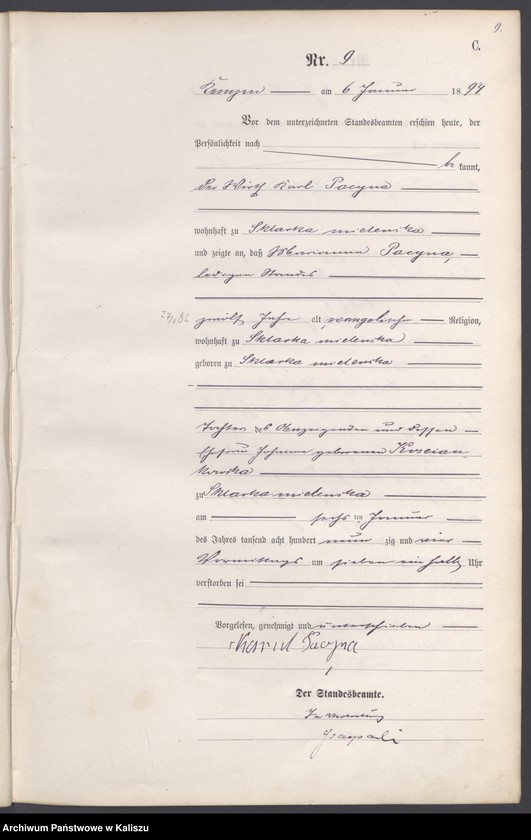 9.
C.
Nr. 9
Kempen am 6 Januar 1894
Vor dem unterzeichneten Standesbeamten erschien heute, der
Persönlichkeit nach
be kannt,
der Wirth Karl Pacyna
wohnhaft zu Sklarka mielenska
und zeigte an, daß Marianna Pacyna,
ledigen Standes
zwölf Jahr alt, evangelischer Religion,
wohnhaft zu Sklarka mielenska
geboren zu Sklarka mielenska
Tochter des Anzeigenden und dessen
Ehefrau Johanna geborenen Koscian-
kowska
zu Sklarka mielenska
am sechs ten Januar
des Jahres tausend acht hundert neun zig und vier
Vormittags um sieben ein halb Uhr
verstorben sei
Vorgelesen, genehmigt und unterschrieben
Karol Pacyna
Der Standesbeamte.
In Vertretung
Archiwum Państwowe w Kaliszu